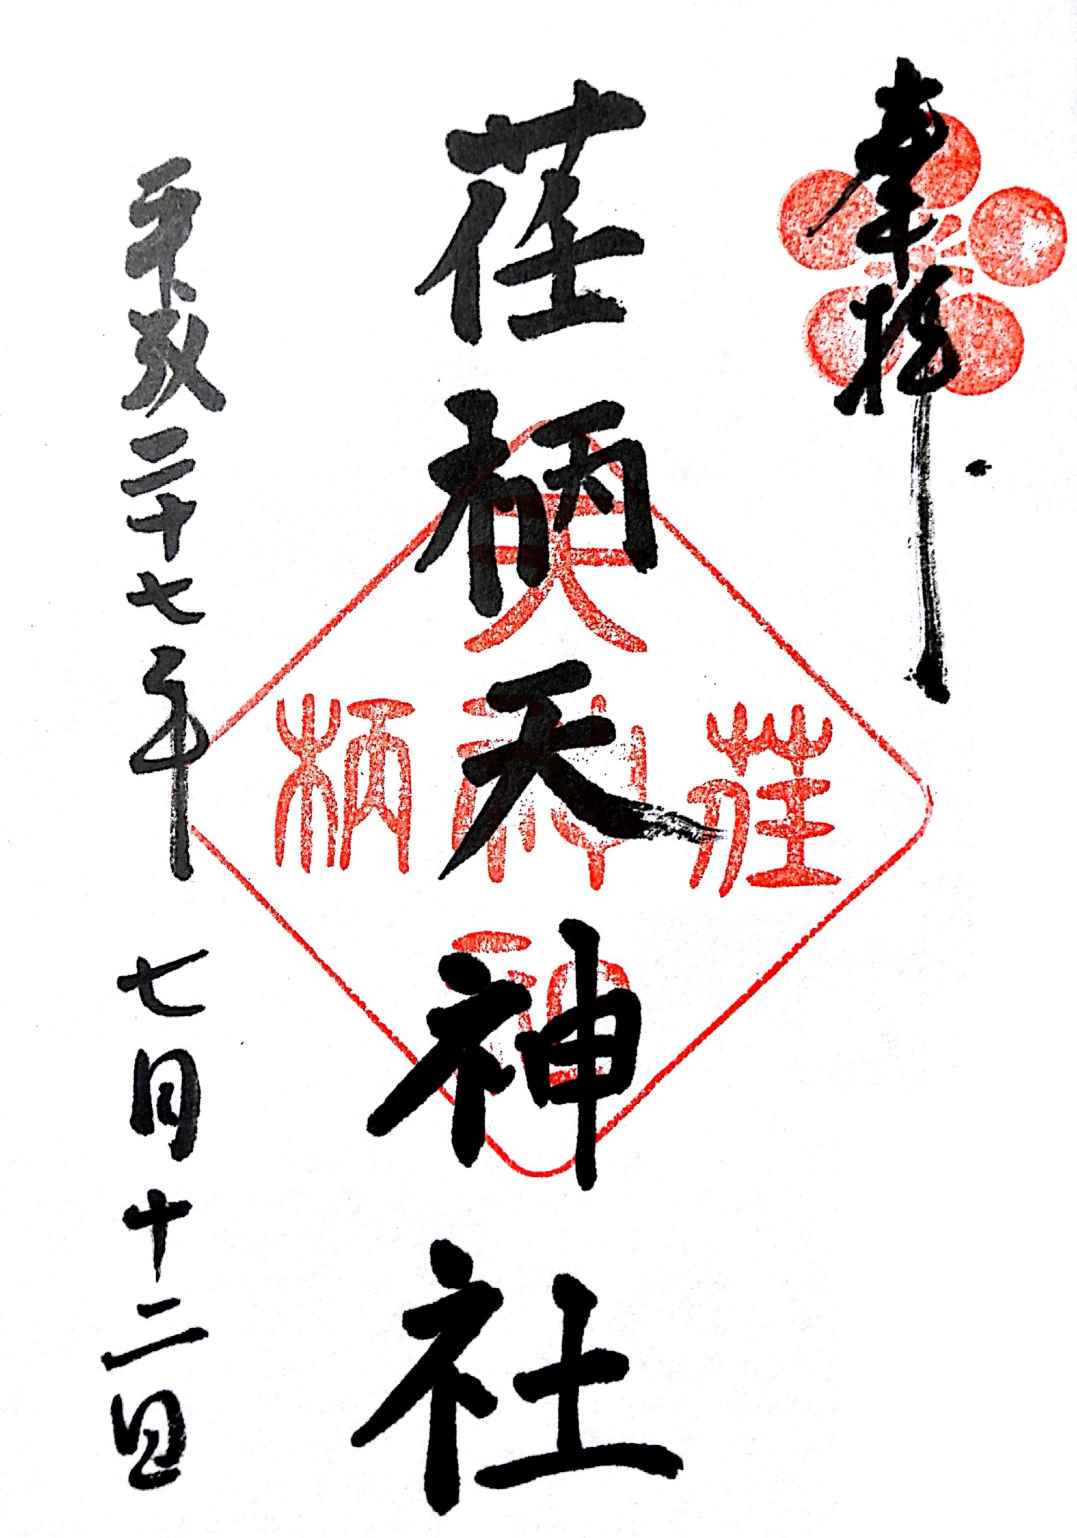 奉拝
荏柄天神社
天
荏神柄
神
平成二十七年 七月十二日